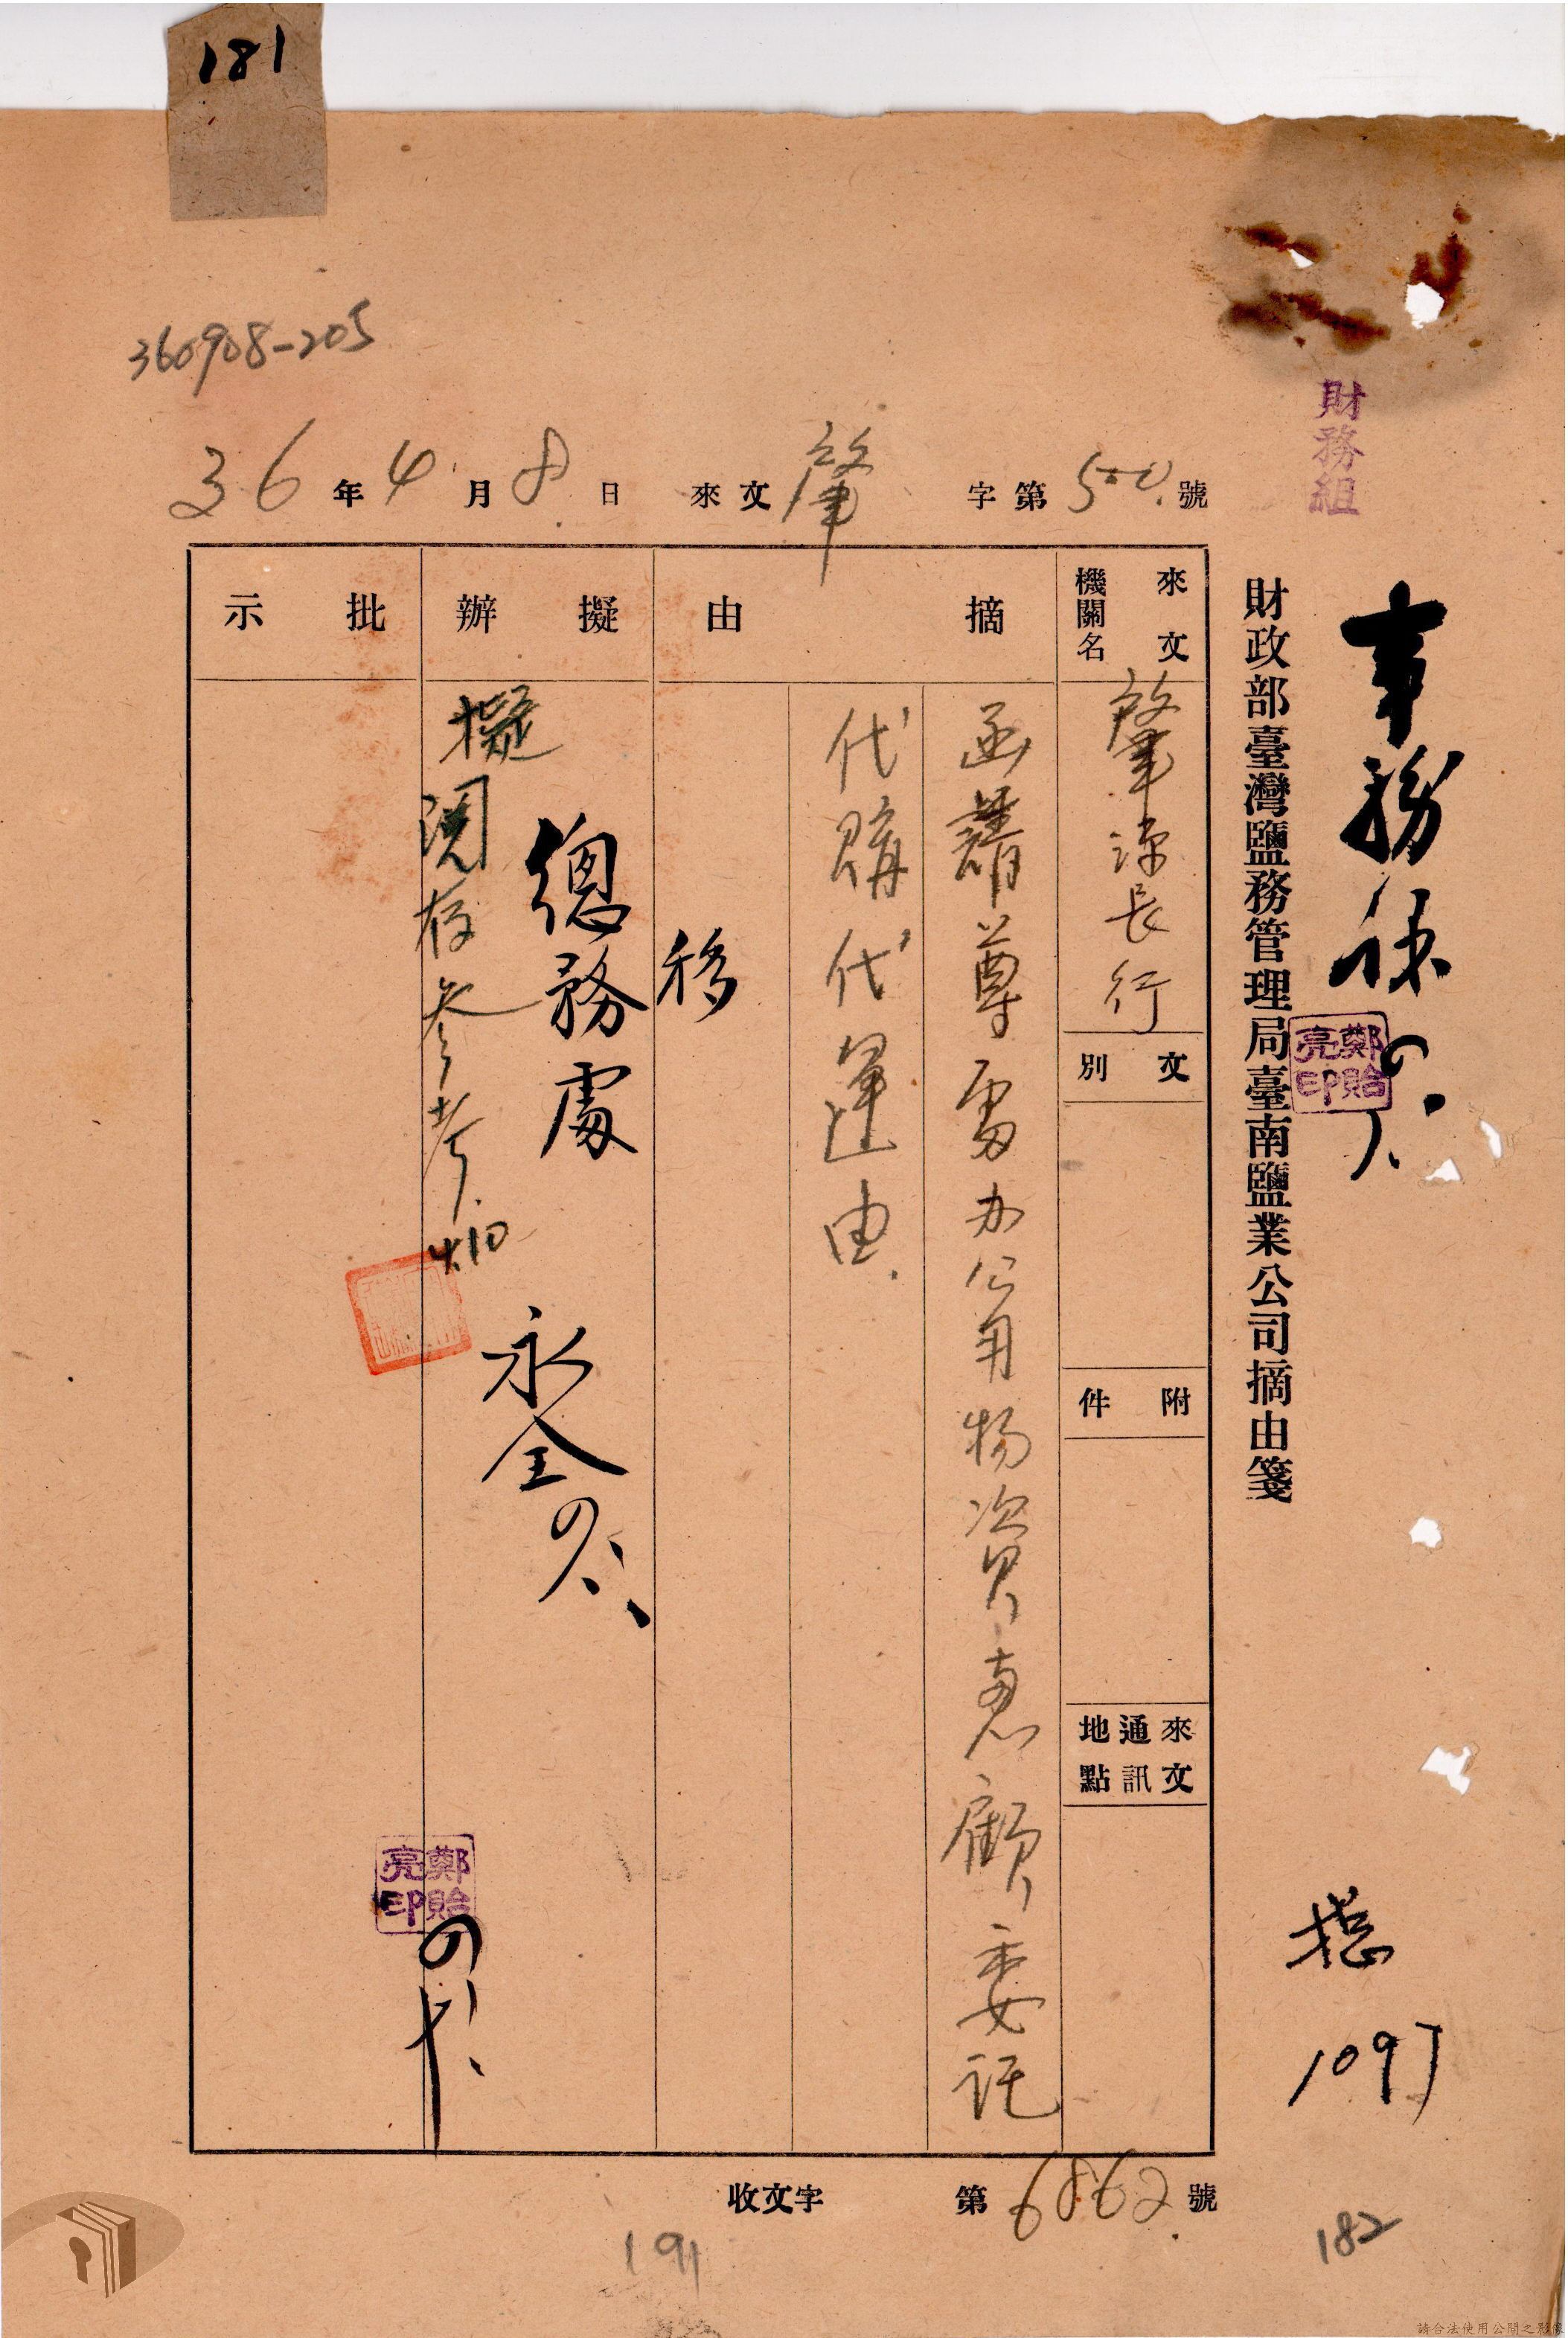 181
360908-205
財務組
36年4月8日 來文肇字第500號
事務課
鄭貽亮印
財政部臺灣鹽務管理局臺南鹽業公司摘由箋
總
1097
來文機關名
肇源長行
文別
附件
來文通訊地點
摘由
函請尊處办公用物資惠顧委託
代購代運由
移
總務處
永全
擬辦
擬閱存參考
4.10
鄭貽亮印
批示
收文字第6862號
191
182
請合法使用公開之影像